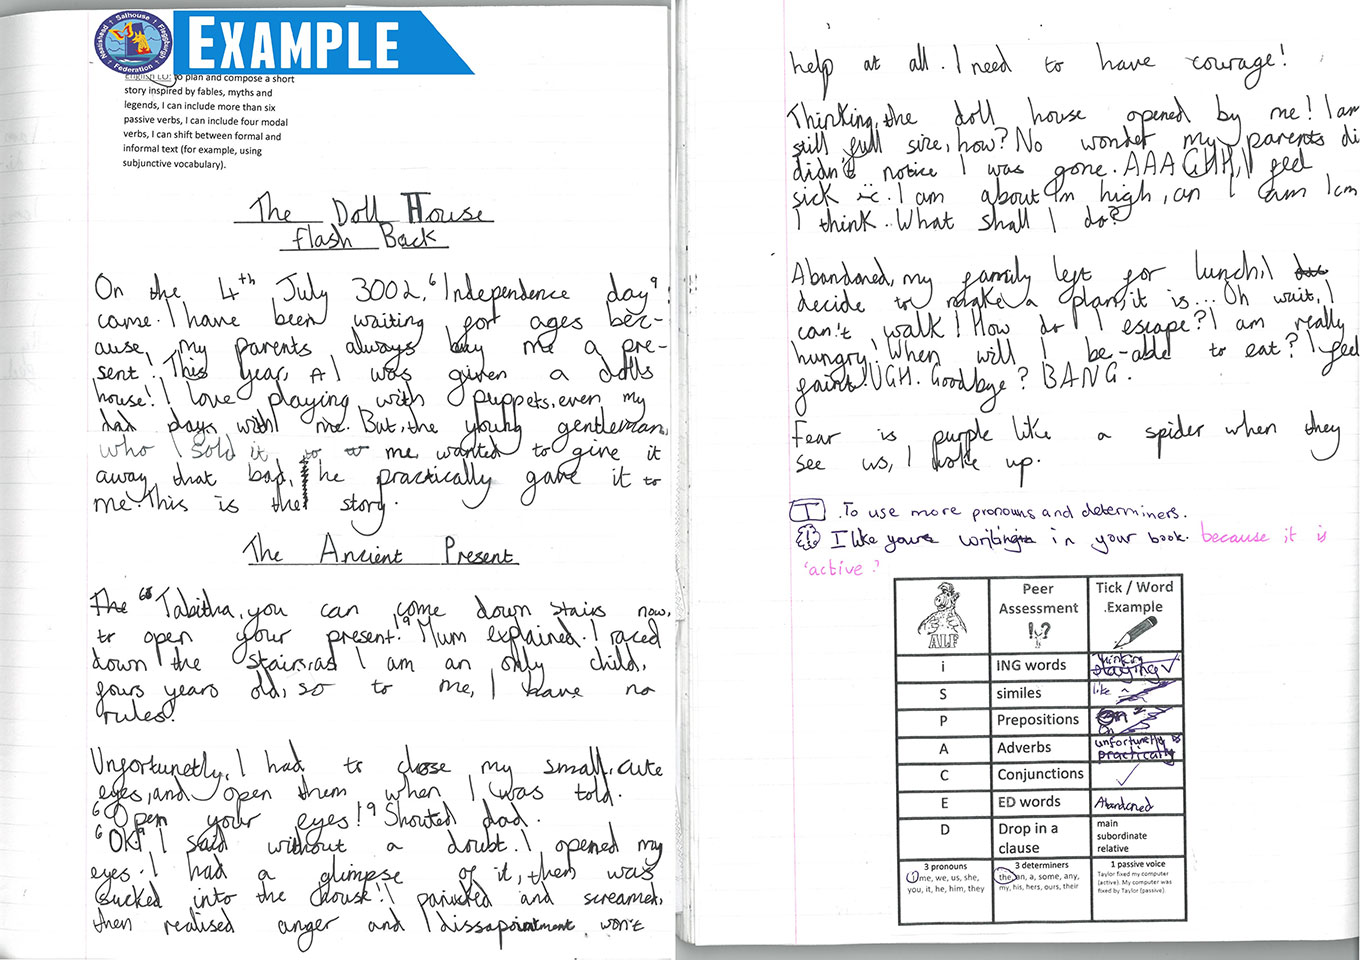 Neatishead Salhouse Fleggburgh
Federation
EXAMPLE
English LO: to plan and compose a short
story inspired by fables, myths and
legends, I can include more than six
passive verbs, I can include four modal
verbs, I can shift between formal and
informal text (for example, using
subjunctive vocabulary).
The Doll House
flash Back
On the 4th July 3002, 'Independence day'
came. I have been waiting for ages bec-
ause, my parents always buy me a pre-
sent! This year, I was given a dolls
house! I love playing with puppets, even my
dad plays with me. But, the young gentleman,
who sold it to me, wanted to give it
away that bad, he practically gave it to
me. This is the story.
The Ancient Present
The "Tabitha, you can come down stairs now,
to open your present!" Mum explained. I raced
down the stairs, as I am an only child,
fours years old, so to me, I have no
rules.
Unfortunetly, I had to close my small, cute
eyes, and open them when I was told.
'Open your eyes!' Shouted dad.
'OK!' I said without a doubt. I opened my
eyes. I had a glimpse of it, then was
sucked into the house! I panicked and screamed,
then realised anger and dissapointment won't
help at all. I need to have courage!
Thinking, the doll house opened by me! I am
still full size, how? No wonder my parents di
didn't notice I was gone. AAAGHH, I feel
sick :(. I am about 1m high, can I am 1cm
I think. What shall I do?
Abandoned, my family left for lunch, I
decide to make a plan, it is... Oh wait, I
can't walk! How do I escape? I am really
hungry! When will I be-able to eat? I feel
faint! UGH. Goodbye? BANG.
Fear is purple like a spider when they
see us, I woke up.
T .To use more pronouns and determiners.
I like your writing in your book. because it is
'active.'
ALF
Peer
Assessment
!?
Tick / Word
.Example
i ING words thinking
S similes like
P Prepositions On
A Adverbs unfortunetly
practically
C Conjunctions ✓
E ED words Abandoned
D Drop in a
clause
main
subordinate
relative
3 pronouns
I, me, we, us, she,
you, it, he, him, they
3 determiners
the, an, a, some, any,
my, his, hers, ours, their
1 passive voice
Taylor fixed my computer
(active). My computer was
fixed by Taylor (passive).